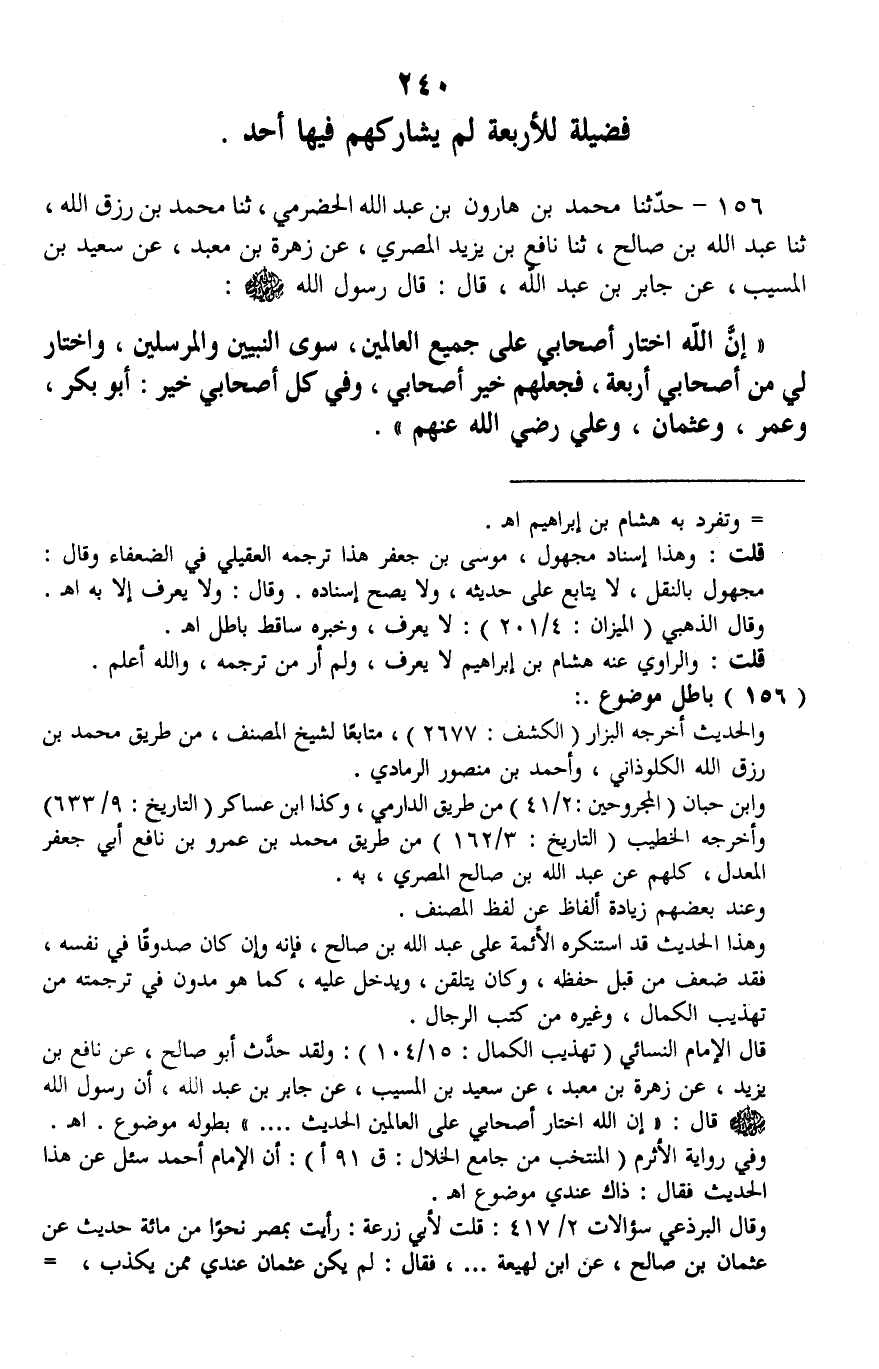 ٢٤٠
فضيلة للأربعة لم يشاركهم فيها أحد .
١٥٦ - حدّثنا محمد بن هارون بن عبد الله الحضرمي ، ثنا محمد بن رزق الله ،
ثنا عبد الله بن صالح ، ثنا نافع بن يزيد المصري ، عن زهرة بن معبد ، عن سعيد بن
المسيب ، عن جابر بن عبد الله ، قال : قال رسول الله ﷺ :
« إنَّ اللّه اختار أصحابي على جميع العالمين، سوى النبيين والمرسلين ، واختار
لي من أصحابي أربعة، فجعلهم خير أصحابي ، وفي كل أصحابي خير : أبو بكر ،
وعمر ، وعثمان ، وعلي رضي الله عنهم » .
= وتفرد به هشام بن إبراهيم اهـ .
قلت : وهذا إسناد مجهول ، موسى بن جعفر هذا ترجمه العقيلي في الضعفاء وقال :
مجهول بالنقل ، لا يتابع على حديثه ، ولا يصح إسناده . وقال : ولا يعرف إلا به اهـ .
وقال الذهبي ( الميزان : ٢٠١/٤ ) : لا يعرف ، وخبره ساقط باطل اهـ .
قلت : والراوي عنه هشام بن إبراهيم لا يعرف ، ولم أر من ترجمه ، والله أعلم .
( ١٥٦ ) باطل موضوع .:
والحديث أخرجه البزار ( الكشف : ٢٦٧٧ ) ، متابعًا لشيخ المصنف ، من طريق محمد بن
رزق الله الكلوذاني ، وأحمد بن منصور الرمادي .
وابن حبان ( المجروحين : ٤١/٢ ) من طريق الدارمي ، وكذا ابن عساكر ( التاريخ : ٦٣٣/٩)
وأخرجه الخطيب ( التاريخ : ١٦٢/٣ ) من طريق محمد بن عمرو بن نافع أبي جعفر
المعدل ، كلهم عن عبد الله بن صالح المصري ، به .
وعند بعضهم زيادة ألفاظ عن لفظ المصنف .
وهذا الحديث قد استنكره الأئمة على عبد الله بن صالح ، فإنه وإن كان صدوقًا في نفسه ،
فقد ضعف من قبل حفظه ، وكان يتلقن ، ويدخل عليه ، كما هو مدون في ترجمته من
تهذيب الكمال ، وغيره من كتب الرجال .
قال الإمام النسائي ( تهذيب الكمال : ١٠٤/١٥ ) : ولقد حدَّث أبو صالح ، عن نافع بن
يزيد ، عن زهرة بن معبد ، عن سعيد بن المسيب ، عن جابر بن عبد الله ، أن رسول الله
ﷺ قال : « إن الله اختار أصحابي على العالمين الحديث .... » بطوله موضوع . اهـ .
وفي رواية الأثرم ( المنتخب من جامع الخلال : ق ٩١ أ ) : أن الإمام أحمد سئل عن هذا
الحديث فقال : ذاك عندي موضوع اهـ .
وقال البرذعي سؤالات ٢/ ٤١٧ : قلت لأبي زرعة : رأيت بمصر نحوًا من مائة حديث عن
عثمان بن صالح ، عن ابن لهيعة ... ، فقال : لم يكن عثمان عندي ممن يكذب ، =